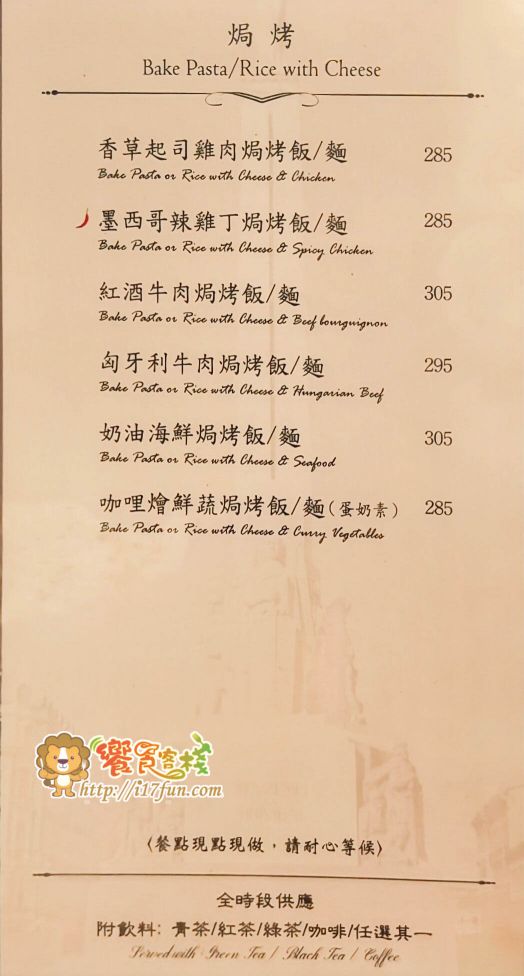 焗 烤
Bake Pasta/Rice with Cheese
香草起司雞肉焗烤飯/麵 285
Bake Pasta or Rice with Cheese & Chicken
墨西哥辣雞丁焗烤飯/麵 285
Bake Pasta or Rice with Cheese & Spicy Chicken
紅酒牛肉焗烤飯/麵 305
Bake Pasta or Rice with Cheese & Beef bourguignon
匈牙利牛肉焗烤飯/麵 295
Bake Pasta or Rice with Cheese & Hungarian Beef
奶油海鮮焗烤飯/麵 305
Bake Pasta or Rice with Cheese & Seafood
咖哩燴鮮蔬焗烤飯/麵(蛋奶素) 285
Bake Pasta or Rice with Cheese & Curry Vegetables
饗食客棧
http://i17fun.com
〈餐點現點現做，請耐心等候〉
全時段供應
附飲料: 青茶/紅茶/綠茶/咖啡/任選其一
Served with Green Tea / Black Tea / Coffee